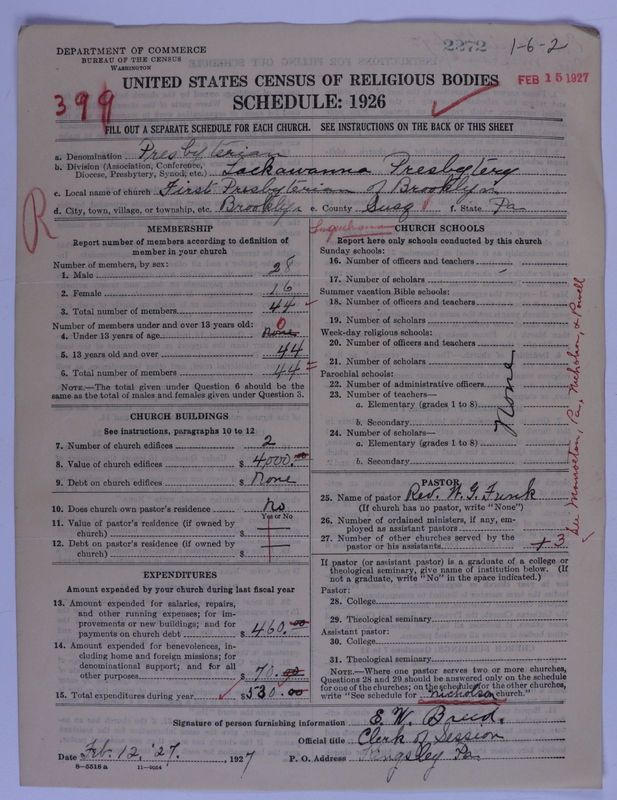 DEPARTMENT OF COMMERCE
BUREAU OF THE CENSUS
WASHINGTON
2272
1-6-2
UNITED STATES CENSUS OF RELIGIOUS BODIES
FEB 15 1927
399
SCHEDULE: 1926
FILL OUT A SEPARATE SCHEDULE FOR EACH CHURCH. SEE INSTRUCTIONS ON THE BACK OF THIS SHEET
a. Denomination Presbyterian
b. Division (Association, Conference, Diocese, Presbytery, Synod, etc.) Lackawanna Presbytery
c. Local name of church First Presbyterian of Brooklyn
d. City, town, village, or township, etc. Brooklyn e. County Susq f. State Pa
R
Susquehanna
MEMBERSHIP
Report number of members according to definition of
member in your church
Number of members by sex:
1. Male 28
2. Female 16
3. Total number of members 44
Number of members under and over 13 years old:
4. Under 13 years of age None 0
5. 13 years old and over 44
6. Total number of members 44
NOTE.—The total given under Question 6 should be the
same as the total of males and females given under Question 3.
CHURCH BUILDINGS
See instructions, paragraphs 10 to 12
7. Number of church edifices 2
8. Value of church edifices $ 4000.00
9. Debt on church edifices $ None
10. Does church own pastor's residence No
Yes or No
11. Value of pastor's residence (if owned by
church) $
12. Debt on pastor's residence (if owned by
church) $
EXPENDITURES
Amount expended by your church during last fiscal year
13. Amount expended for salaries, repairs,
and other running expenses; for im-
provements or new buildings; and for
payments on church debt $ 460.00
14. Amount expended for benevolences, in-
cluding home and foreign missions; for
denominational support; and for all
other purposes $ 70.00
15. Total expenditures during year $ 530.00
CHURCH SCHOOLS
Report here only schools conducted by this church
Sunday schools:
16. Number of officers and teachers
17. Number of scholars
Summer vacation Bible schools:
18. Number of officers and teachers
19. Number of scholars
Week-day religious schools:
20. Number of officers and teachers
21. Number of scholars
Parochial schools:
22. Number of administrative officers
23. Number of teachers—
a. Elementary (grades 1 to 8)
b. Secondary
24. Number of scholars—
a. Elementary (grades 1 to 8)
b. Secondary
None
See Monroeton, Pa, Nicholson, & Powell
PASTOR
25. Name of pastor Rev. W. G. Funk
(If church has no pastor, write "None")
26. Number of ordained ministers, if any, em-
ployed as assistant pastors
27. Number of other churches served by the
pastor or his assistants 3
If pastor (or assistant pastor) is a graduate of a college or
theological seminary, give name of institution below. (If
not a graduate, write "No" in the space indicated.)
Pastor:
28. College
29. Theological seminary
Assistant pastor:
30. College
31. Theological seminary
NOTE.—Where one pastor serves two or more churches,
Questions 28 and 29 should be answered only on the schedule
for one of the churches; on the schedules for the other churches,
write "See schedule for Nicholson church."
Signature of person furnishing information E. W. Breed.
Official title Clerk of Session
Date Feb. 12, '27. , 1927 P. O. Address Kingsley Pa
8—5518 a 11—9024